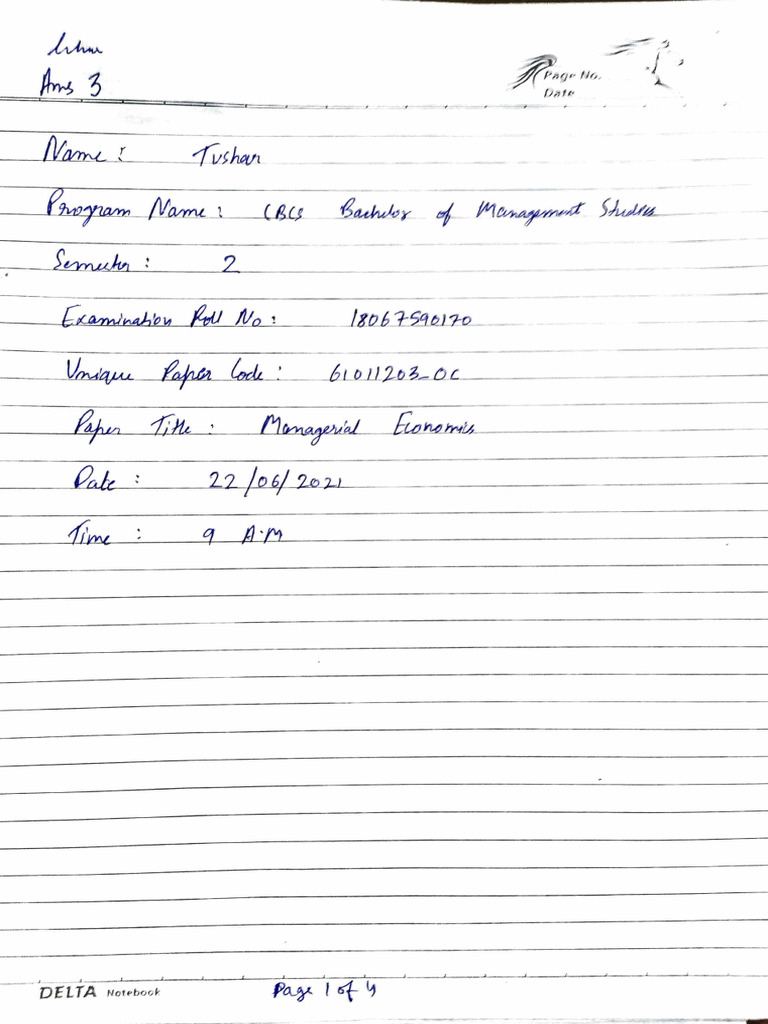 Ans 3
Page No.
Date
Name: Tushar
Program Name: CBCS Bachelor of Management Studies
Semester: 2
Examination Roll No: 18067590170
Unique Paper Code: 61011203_OC
Paper Title: Managerial Economics
Date: 22/06/2021
Time: 9 A.M
DELTA Notebook
Page 1 of 4